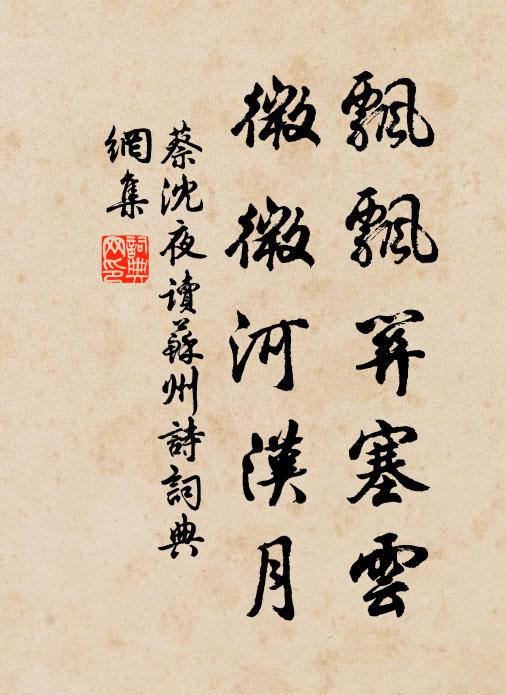 飄飄關塞雲
微微河漢月
蔡沈夜讀蘇州詩詞典
網集
詞典網印